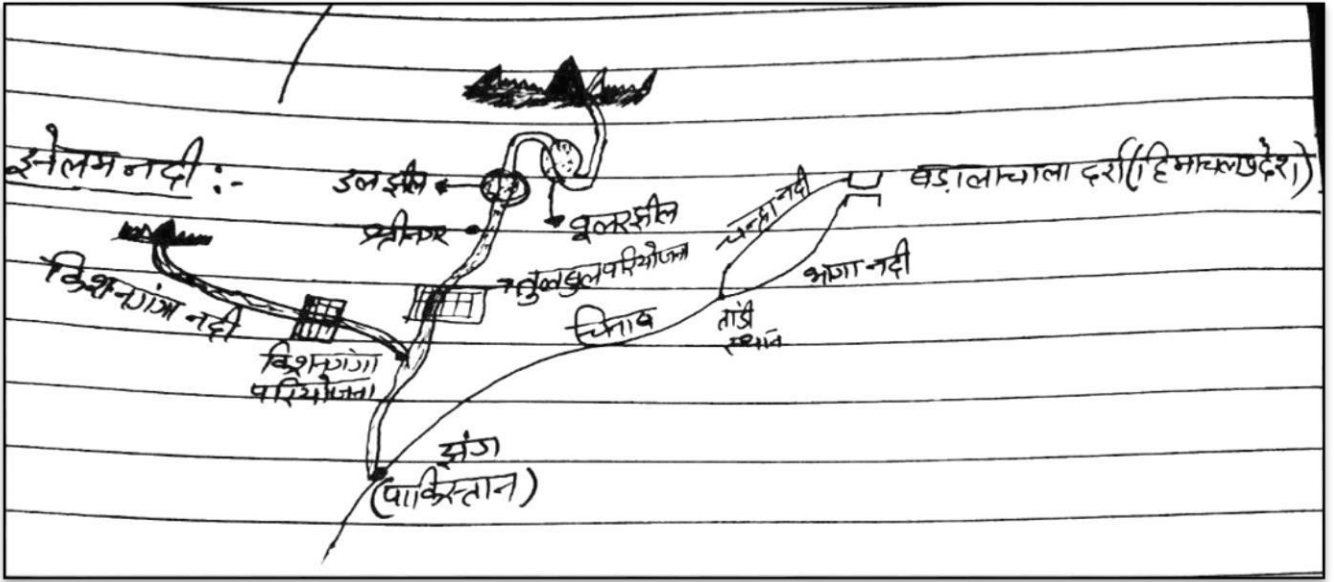 झेलम नदी :-
डल झील
वूलर झील
श्रीनगर
तुलबुल परियोजना
किशनगंगा नदी
किशनगंगा
परियोजना
चन्द्रा नदी
बड़ालाचाला दर्रा (हिमाचल प्रदेश)
भागा नदी
तांडी
स्थान
चिनाब
झंग
(पाकिस्तान)